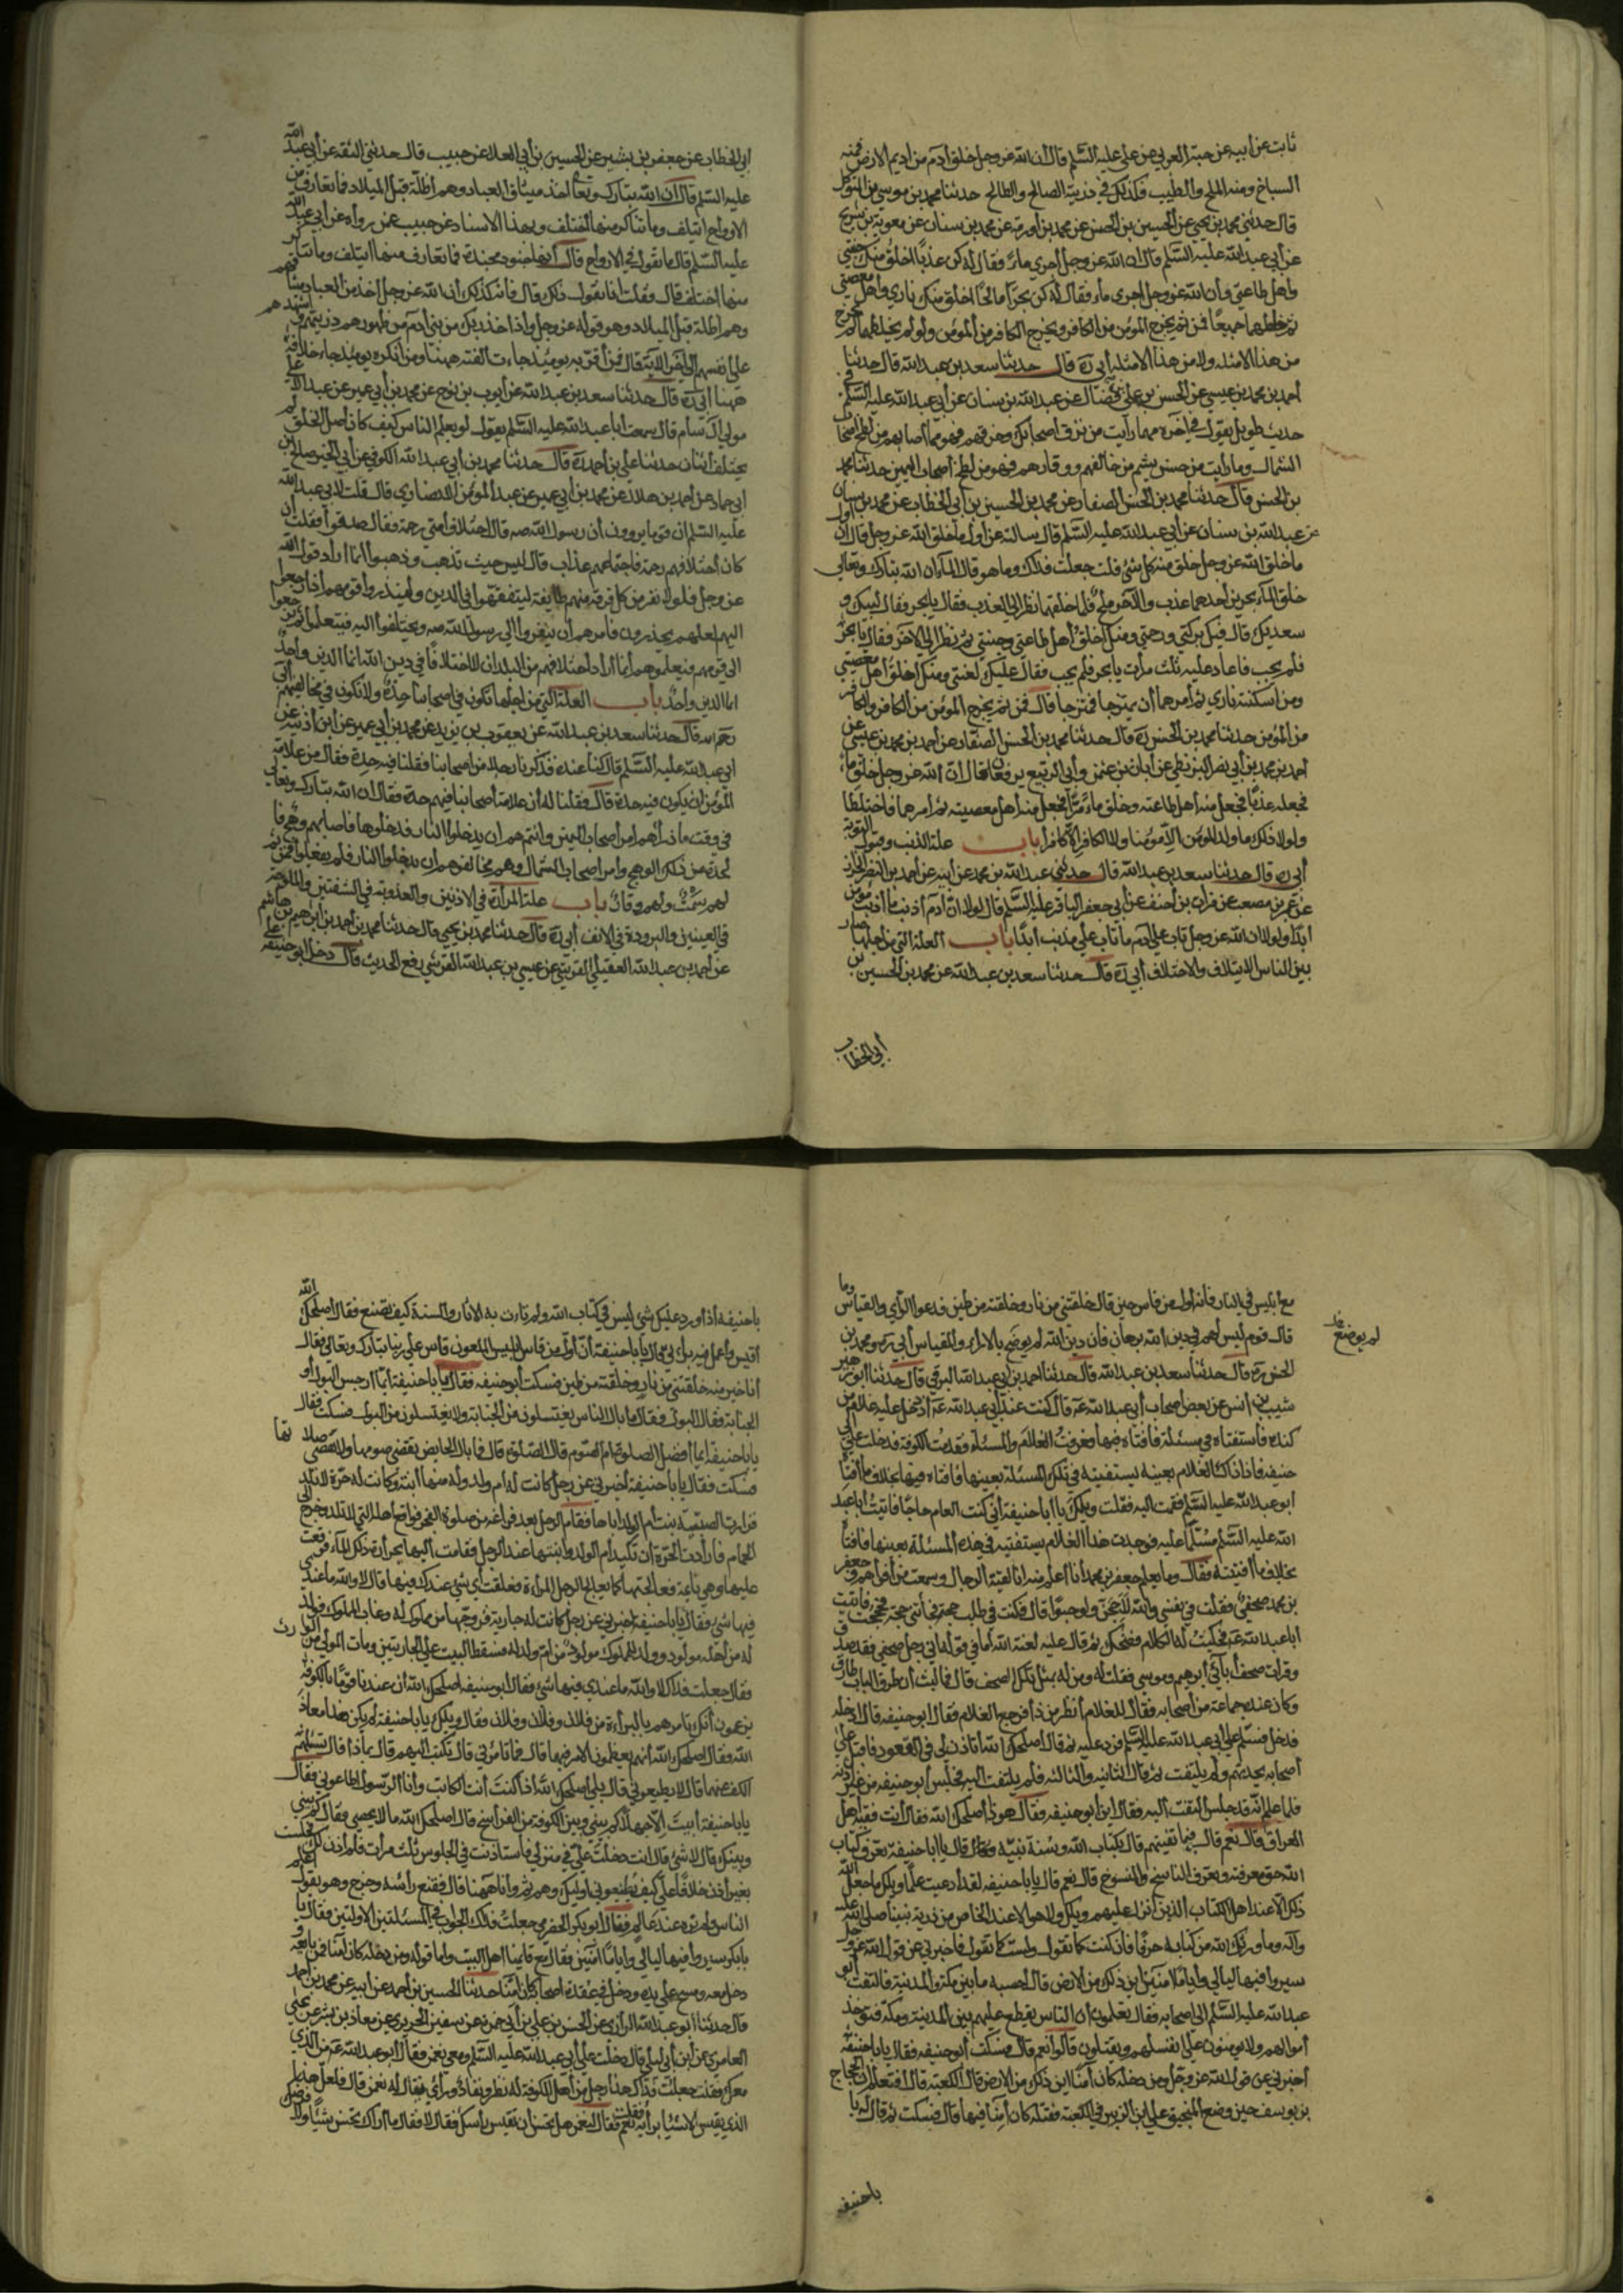 ثابت عن أبيه عن حبة العرني عن علي عليه السّلم قال أن الله عز وجل خلق آدم من أديم الارض فمنه
السباخ ومنه الملح والطيب فكذلك في ذريته الصالح والطالح حدثنا محمد بن موسي بن المتوكل
قال حدثني محمد بن يحيي عن الحسين بن الحسن عن محمد بن أورمة عن محمد بن سنان عن معوية بن شريح
عن أبي عبد الله عليه السّلم قال ان الله عز وجل أجري ماءً فقال له كن عذبًا اخلق منك جنتي
وأهل طاعتي وأن الله عز وجل اجري ماء فقال له كن بحرًا مالحًا اخلق منك ناري وأهل معصيتي
ثم خلطهما جميعًا فمن ثم يخرج المؤمن من الكافر ويخرج الكافر من المؤمن ولو لم يخلطهما لم يخرج
من هذا الا مثله ولا من هذا الا مثله أبي ره قال حدثنا سعد بن عبد الله قال حدثنا
أحمد بن محمد بن عيسي عن الحسن بن علي بن فضال عن عبد الله بن سنان عن أبي عبد الله عليه السّلم في
حديث طويل يقول في آخره مهما رأيت من نزق أصحابك وخرقهم فهو مما أصابهم من لطخ أصحاب
الشمال وما رأيت من حسن شيم من خالفهم ووقارهم فهو من لطخ أصحاب اليمين حدثنا محمد
بن الحسن قال حدثنا محمد بن الحسن الصفار عن محمد بن الحسين بن أبي الخطاب عن محمد بن سنان
عن عبد الله بن سنان عن أبي عبد الله عليه السّلم قال سالته عن أول ما خلق الله عز وجل قال ان أول
ما خلق الله عز وجل خلق منه كل شئ قلت جعلت فداك وما هو قال الماء ان الله تبارك وتعالي
خلق الماء بحرين أحدهما عذب والآخر ملح فلما خلقهما نظر إلي العذب فقال يا بحر فقال لبيك و
سعديك قال فيك بركتي ورحمتي ومنك أخلق أهل طاعتي وجنتي ثم نظر إلي الآخر فقال يا بحر
فلم يجب فاعاد عليه ثلث مرات يا بحر فلم يجب فقال عليك لعنتي ومنك أخلق أهل معصيتي
ومن أسكنته ناري ثم أمرهما أن يمتزجا فامتزجا قال فمن ثم يخرج المؤمن من الكافر والكافر
من المؤمن حدثنا محمد بن الحسن ره قال حدثنا محمد بن الحسن الصفار عن أحمد بن محمد بن عيسي عن
أحمد بن محمد بن أبي نصر البزنطي عن أبان بن عثمن وأبي الربيع يرفعانه قال ان الله عز وجل خلق ماءً
فجعله عذبًا فجعل منه أهل طاعته وخلق ماءً مرًا فجعل منه أهل معصيته ثم أمرهما فاختلطا
ولولا ذلك ما ولد المؤمن الا مؤمنا ولا الكافر الا كافرا باب علة الذنب وقبول التوبة
أبي ره قال حدثنا سعد بن عبد الله قال حدثني عبد الله بن محمد عن أبيه عن أحمد بن النضر الخزاز
عن عمر بن مصعب عن فرات بن أحنف عن أبي جعفر الباقر عليه السّلم قال لولا انّ آدم أذنب ما أذنب مؤمن
ابدًا ولولا ان الله عز وجل تاب علي آدم ما تاب علي مذنب أبدًا باب العلة التي من اجلها صار
بين الناس الايتلاف والاختلاف أبي ره قال حدثنا سعد بن عبد الله عن محمد بن الحسين بن
أبي الخطاب
ابي الخطاب عن جعفر بن بشير عن الحسين بن أبي العلا عن حبيب قال حدثني الثقة عن أبي عبد الله
عليه السّلم قال ان الله تبارك وتعالي أخذ ميثاق العباد وهم أظلة قبل الميلاد فما تعارف من
الارواح ائتلف وما تناكر منها اختلف وبهذا الاسناد عن حبيب عمن رواه عن أبي عبد الله
عليه السّلم قال ما تقول في الارواح قال انها جنود مجندة فما تعارف منها ائتلف وما تناكر
منها اختلف قال وقلت انا نقول ذلك قال فانه كذلك أن الله عز وجل أخذ من العباد ميثاقهم
وهم اظلة قبل الميلاد وهو قوله عز وجل واذ اخذ ربك من بني آدم من ظهورهم ذريتهم واشهدهم
علي أنفسهم إلي آخر الاية قال فمن أقر به يومئذ جاءت الفته ههنا ومن انكره يومئذ جاء خلافه
ههنا أبي ره قال حدثنا سعد بن عبد الله عن أيوب بن نوح عن محمد بن أبي عمير عن عبد الاعلي
مولي آل سام قال سمعت أبا عبد الله عليه السّلم يقول لو يعلم الناس كيف كان أصل الخلق لم
يختلف أثنان حدثنا علي بن أحمد ره قال حدثنا محمد بن أبي عبد الله الكوفي عن أبي الخير صالح بن
أبي حماد عن أحمد بن هلال عن محمد بن أبي عمير عن عبد المؤمن الانصاري قال قلت لابي عبد الله
عليه السّلم ان قوما يروون أن رسول الله صه قال اختلاف أمتي رحمة فقال صدقوا فقلت أن
كان أختلافهم رحمة فاجتماعهم عذاب قال ليس حيث تذهب وذهبوا أنما أراد قول الله
عز وجل فلولا نفر من كل فرقة منهم طايفة ليتفقهوا في الدين ولينذروا قومهم أذا رجعوا
اليهم لعلهم يحذرون فامرهم أن ينفروا إلي رسول الله صه ويختلفوا اليه فيتعلموا ثم يرجعوا
الي قومهم فيعلموهم أنما أراد أختلافهم من البلدان لا اختلافا في دين الله انما الدين واحد
انما الدين واحد باب العلة التي من اجلها تكون في أصحابنا حدة ولا تكون في مخالفيهم أبي
رحمه الله قال حدثنا سعد بن عبد الله عن يعقوب بن يزيد عن محمد بن أبي عمير عن ابن أذينة عن
أبي عبد الله عليه السّلم قال كنا عنده فذكرنا رجلا من أصحابنا فقلنا فيه حدة فقال من علامة
المؤمن ان يكون فيه حدة قال فقلنا له أن عامة أصحابنا فيهم حدة فقال ان الله تبارك وتعالي
في وقت ما ذرأهم أمر أصحاب اليمين وأنتم هم ان يدخلوا النار فدخلوها فاصابهم وهج فا
لحدة من ذلك الوهج وامر اصحاب الشمال وهم مخالفوهم ان يدخلوا النار فلم يفعلوا فمن ثم
لهم سمت ولهم وقار باب علة المرارة في الاذنين والعذوبة في الشفتين والملوحة
في العينين والبرودة في الانف أبي ره قال حدثنا محمد بن يحيي قال حدثنا محمد بن أحمد بن ابراهيم بن هاشم
عن أحمد بن عبد الله العقيلي القرشي عن عيسي بن عبد الله القرشي رفع الحديث قال دخل أبو حنيفه علي
مع أبليس في النار فانه أول من قاس حين قال خلقتني من نار وخلقته من طين فدعوا الرأي والقياس وما
قال قوم ليس لهم في دين الله برهان فان دين الله لم يوضع بالاراء والمقياس أبي ره ومحمد بن
لم يوضع خل
الحسن ره قال حدثنا سعد بن عبد الله قال حدثنا احمد بن أبي عبد الله البرقي قال حدثنا أبو زهير
شبيب بن أنس عن بعض أصحاب أبي عبد الله عه قال كنت عند أبي عبد الله عه أذ دخل عليه غلام من
كنده فاستفتاه في مسئلة فافتاه فيها فعرفت الغلام والمسئلة فقدمت الكوفة فدخلت علي أبي
حنيفه فاذا ذاك الغلام بعينه يستفتيه في تلك المسئلة بعينها فافتاه فيها بخلاف ما أفتاه
أبو عبد الله عليه السّلم فقمت اليه فقلت ويلك يا أبا حنيفة أني كنت العام حاجًا فاتيت أبا عبد
الله عليه السّلم مسلّمًا عليه فوجدت هذا الغلام يستفتيه في هذه المسئلة بعينها فافتاه
بخلاف ما أفتيته فقال وما يعلم جعفر بن محمد أنا أعلم منه أنا لقيت الرجال وسمعت من أفواههم وجعفر
بن محمد صحفي فقلت في نفسي والله لاحجن ولو حبوًا قال فكنت في طلب حجة فجاءتني حجة فحججت فاتيت
أبا عبد الله عه فحكيت له الكلام فضحك ثم قال عليه لعنة الله أما في قوله اني رجل صحفي فقد صدق
وقرات صحف أبائي أبرهيم وموسي فقلت له ومن له بمثل تلك الصحف قال فما لبث أن طرق الباب طارق
وكان عنده جماعة من أصحابه فقال للغلام أنظر من ذا فرجع الغلام فقال ابو حنيفه قال ادخله
فدخل فسلم علي أبي عبد الله عليه السّلم فرد عليه ثم قال اصلحك الله أتاذن لي في القعود فاقبل علي
أصحابه يحدثهم ولم يلتفت ثم قال الثانيه والثالثه فلم يلتفت اليه فجلس ابو حنيفه من غير أذنه
فلما علم انه قد جلس التفت اليه فقال اين أبو حنيفه فقال هو ذا أصلحك الله فقال أنت فقيه أهل
العراق قال نعم قال فبما تفتيهم قال بكتاب الله وسنة نبيه قال يا ابا حنيفه تعرف كتاب
الله حق معرفته وتعرف الناسخ والمنسوخ قال نعم قال يا ابا حنيفه لقد أدعيت علمًا ويلك ما جعل الله
ذلك الا عند اهل الكتاب الذين أنزل عليهم ويلك ولا هو الا عند الخاص من ذرية نبينا صلي الله عليه
وآله وما ورثك الله من كتابه حرفًا فان كنت كما تقول ولست كما تقول فاخبرني عن قول الله عز وجل
سيروا فيها ليالي واياما آمنين أين ذلك من الارض قال احسبه ما بين مكة والمدينة فالتفت أبو
عبد الله عليه السّلم الي اصحابه فقال تعلمون أن الناس يقطع عليهم بين المدينة ومكة فتؤخذ
أموالهم ولا يؤمنون علي أنفسهم ويقتلون قالوا نعم قال فسكت أبو حنيفه فقال يا ابا حنيفة
أخبرني عن قول الله عز وجل ومن دخله كان آمنًا اين ذلك من الارض قال الكعبة قال أفتعلم أن الحجاج
بن يوسف حين وضع المنجنيق علي ابن الزبير في الكعبة فقتله كان آمنا فيها قال فسكت ثم قال له يا
باحنيفه
باحنيفه أذا ورد عليك شئ ليس في كتاب الله ولم تات به الاثار والسنة كيف تصنع فقال أصلحك الله
أقيس وأعمل فيه برأيي قال يا باحنيفة أن أول من قاس ابليس الملعون قاس علي ربنا تبارك وتعالي فقال
أنا خير منه خلقتني من نار وخلقته من طين فسكت أبو حنيفه فقال يا باحنيفة أيما ارجس البول أو
الجنابة فقال البول فقال ما بال الناس يغتسلون من الجنابة ولا يغتسلون من البول فسكت فقال
يا باحنيفة أيما أفضل الصلوة ام الصوم قال الصلوة قال فما بال الحايض تقضي صومها ولا تقضي صلاتها
فسكت فقال يا باحنيفة أخبرني عن رجل كانت له أم ولد وله منها أبنة وكانت له حرة لا تلد
فزارت الصبية بنت أم الولد أباها فقام الرجل بعد فراغه من صلوة الفجر فواقع اهله التي لا تلد وخرج إلي
الحمام فارادت الحرة أن تكيد أم الولد وأبنتها عند الرجل فقامت اليها بحرارة ذلك الماء فوقعت
عليها وهي نائمة فعالجتها كما يعالج الرجل المرأة فعلقت أي شئ عندك فيها قال لا والله ما عندي
فيها شئ فقال يا باحنيفة أخبرني عن رجل كانت له جارية فزوجها من مملوك له وغاب المملوك فولد
له من أهله مولود وولد للمملوك مولود من أم ولد له فسقط البيت علي الجاريتين ومات المولي من الوارث
فقال جعلت فداك لا والله ما عندي فيها شئ فقال ابو حنيفه اصلحك الله أن عندنا قومًا بالكوفة
يزعمون أنك تامرهم بالبراءة من فلان وفلان وفلان فقال ويلك يا باحنيفة لم يكن هذا معاذ
الله فقال اصلحك الله أنهم يعظمون الامر فيهما قال فما تامرني قال تكتب اليهم قال بماذا قال تسئلهم
الكف عنهما قال لا يطيعوني قال بلي أصلحك الله أذا كنت أنت الكاتب وأنا الرسول اطاعوني فقال
يا باحنيفة أبيت الا جهلا كم بيني وبين الكوفة من الفراسخ قال اصلحك الله ما لا يحصي فقال كم بيني
وبينك قال لا شئ قال انت دخلت علي في منزلي فاستاذنت في الجلوس ثلث مرات فلم اذن لك فجلست
بغير أذني خلافًا علي كيف يطيعوني أوليك وهم ثم وأنا ههنا قال فقنع رأسه وخرج وهو يقول أعلم
الناس ولم نره عند عالم فقال أبو بكر الحضرمي جعلت فداك الجواب في المسئلتين الاولتين فقال يا
بابكر سيروا فيها ليالي واياما آمنين فقال مع قائمنا أهل البيت واما قوله ومن دخله كان آمنا فمن بايعه و
دخل معه ومسح علي يده ودخل في عقدة اصحابه كان آمنًا حدثنا الحسين بن أحمد عن أبيه عن محمد بن أحمد
قال حدثنا أبو عبد الله الرازي عن الحسن بن علي بن أبي حمزة عن سفين الحريري عن معاذ بن بشر عن يحيي
العامري عن ابن أبي ليلي قال دخلت علي أبي عبد الله عليه السّلم ومعي نعمن فقال أبو عبد الله عه من الذي
معك فقلت جعلت فداك هذا رجل من أهل الكوفة له نظر ونقاد ورأي يقال له نعمن قال فلعل هذا
الذي يقيس الاشياء برأيه فقلت نعم فقال يا نعمن هل تحسن ان تقيس رأسك فقال لا فقال ما أراك تحسن شيئًا ولا فرضك